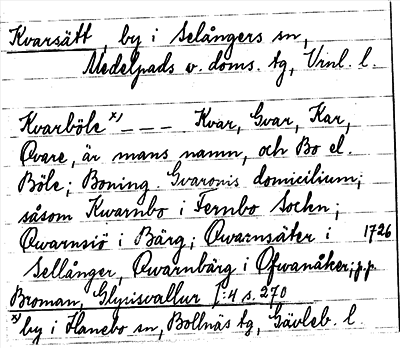 Kvarsätt, by i Selångers sn,
Medelpads v. doms. tg, Vrnl. l.
Kvarböle x) - - - Kvar, Gvar, Kar,
Qvare, är mans namn, och Bo el.
Böle; Boning. Gvaronis domicilium;
såsom Kwarnbo i Fernbo Sockn;
Qwarnsiö i Bärg; Qwarnsäter i 1726
Sellånger, Qwarnbärg i Ofwanåker; p.p.
Broman, Glysisvallur I:4 s. 270
x) by i Hanebo sn, Bollnäs tg, Gävleb. l